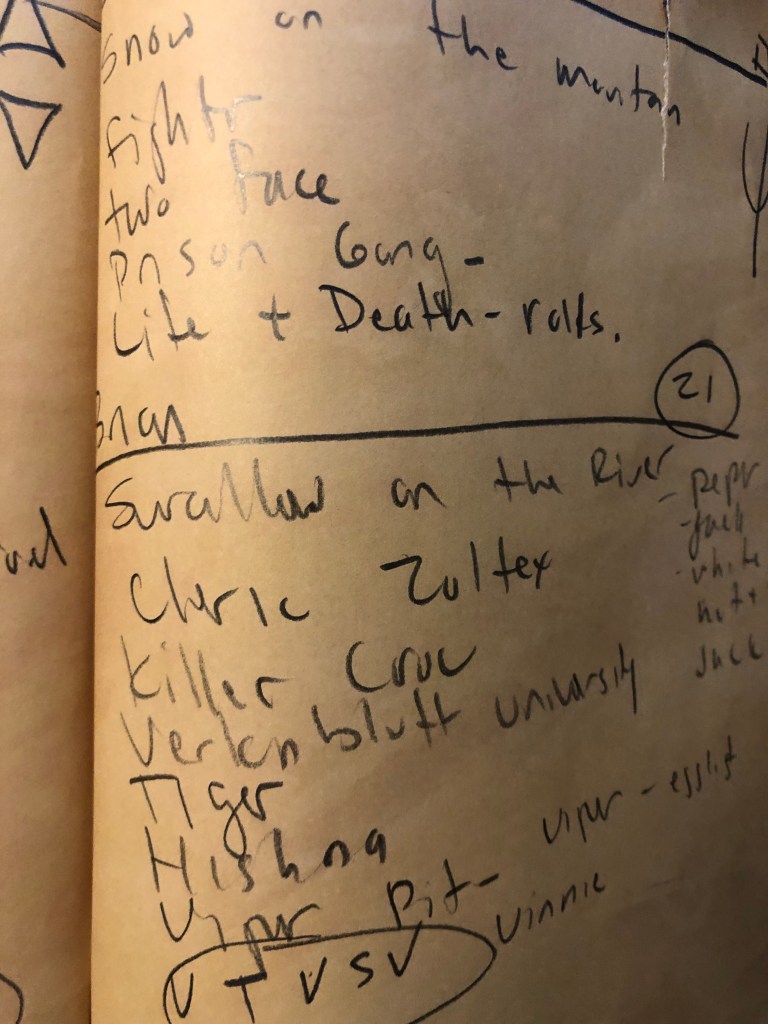 Snow on the montan
Fightr
two Face
Prison Gang -
Life + Death - rolls.
Brian
21
Swallow on the River
- pepr
- Jack
- white
hot +
Jack
Cleric Zoltex
Killer Croc
Verkn bluff university
Tiger
Hishna
Viper Pit -
viper -
Vinnie
V T V S V